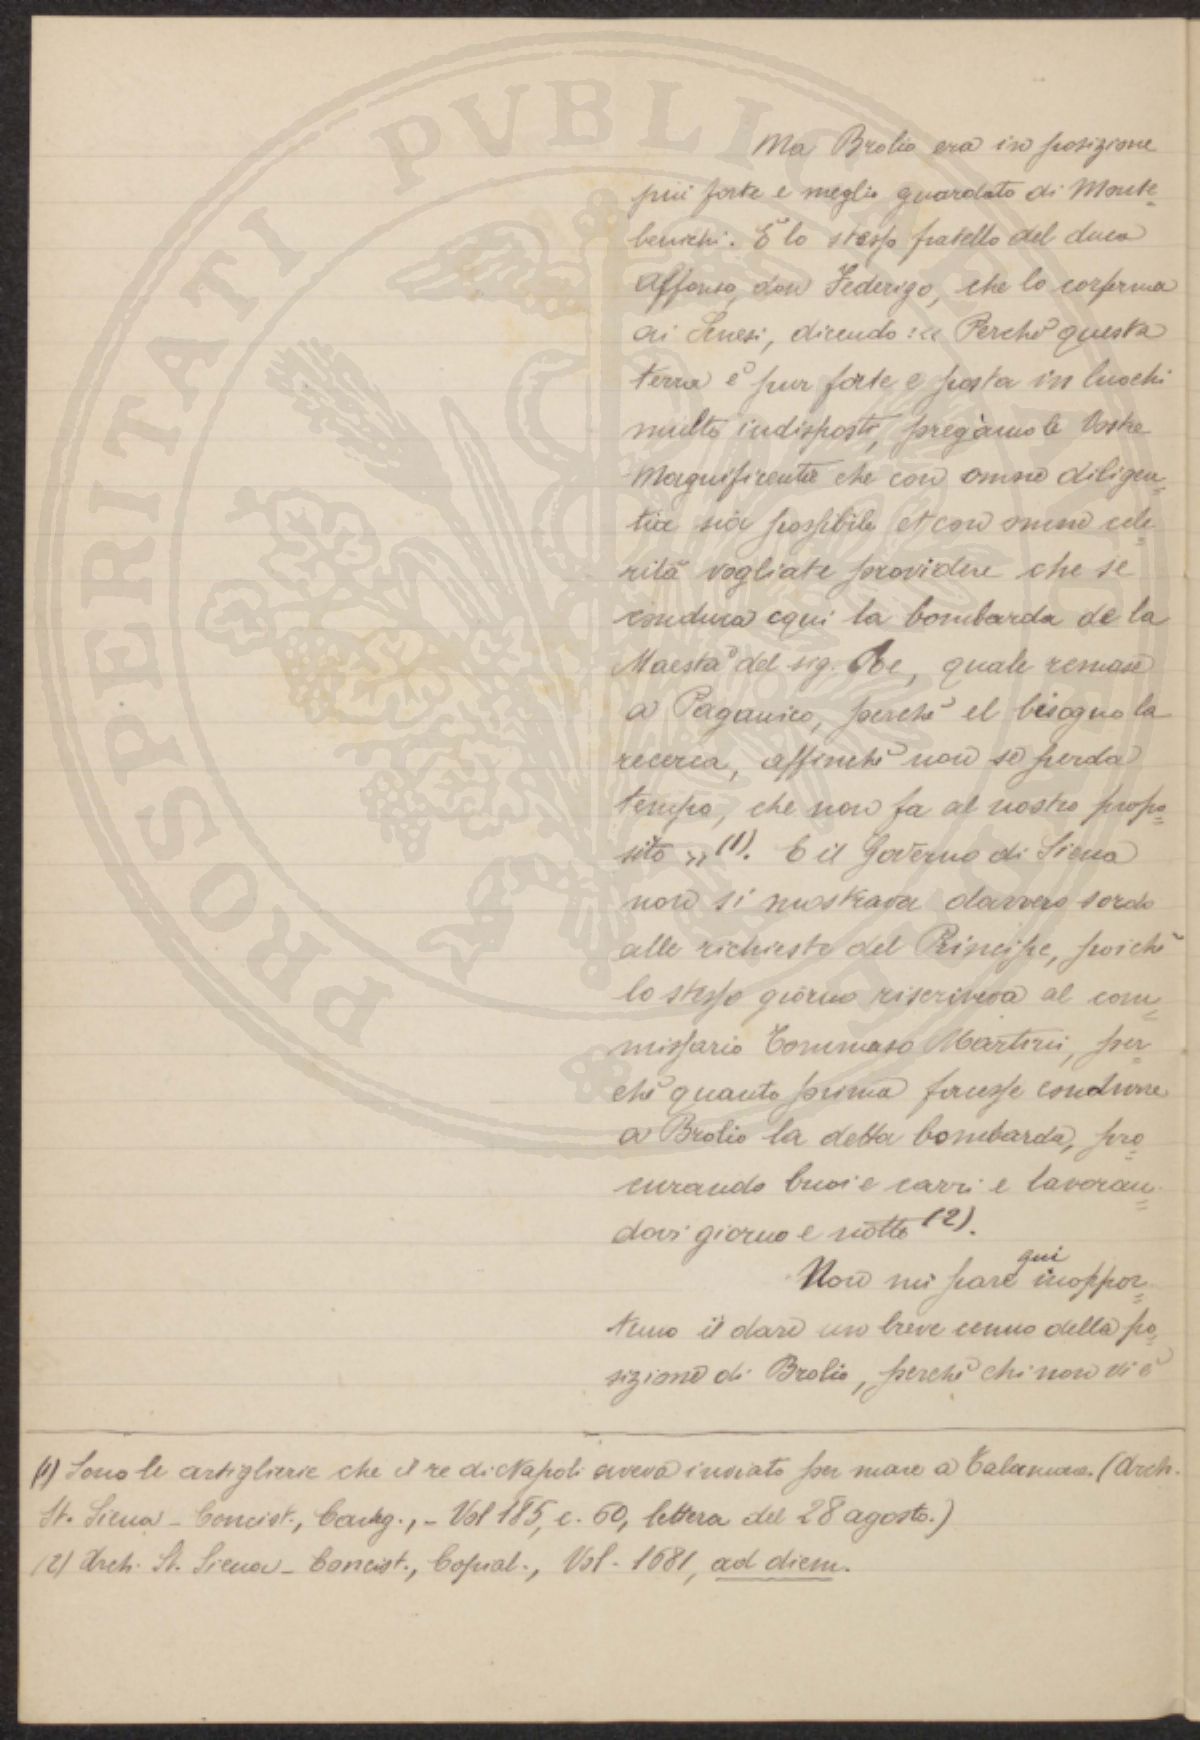 PROSPERITATI PVBLICAE
Ma Brolio era in posizione
piú forte e meglio guardato di Monte=
benichi. È lo stesso fratello del duca
Alfonso, don Federigo, che lo conferma
ai Senesi, dicendo: « Perchè questa
terra è pur forte e posta in luochi
multo indisposti, pregàmo le Vostre
Magnificentie che con omne diligen=
tia sia possibile et con omne cele=
rità vogliate providere che se
conduca equi la bombarda de la
Maestà del sig. Re, quale remase
a Paganico, perchè el bisogno la
recerca, affinchè non se perda
tempo, che non fa al nostro propo=
sito » (1). E il Governo di Siena
non si mostrava davvero sordo
alle richieste del Principe, poichè
lo stesso giorno riscriveva al com=
missario Tommaso Martini, per=
chè quanto prima facesse condurre
a Brolio la detta bombarda, pro=
curando buoi e carri e lavoran=
dovi giorno e notte (2).
Non mi pare qui inoppor=
tuno il dare un breve cenno della po=
sizione di Brolio, perchè chi non vi è
(1) Sono le artiglierie che il re di Napoli aveva inviato per mare a Talamone. (Arch.
St. Siena - Concist., Carteg., - Vol 185, c. 60, lettera del 28 agosto.)
(2) Arch. St. Siena - Concist., Copial., Vol. 1681, ad diem.